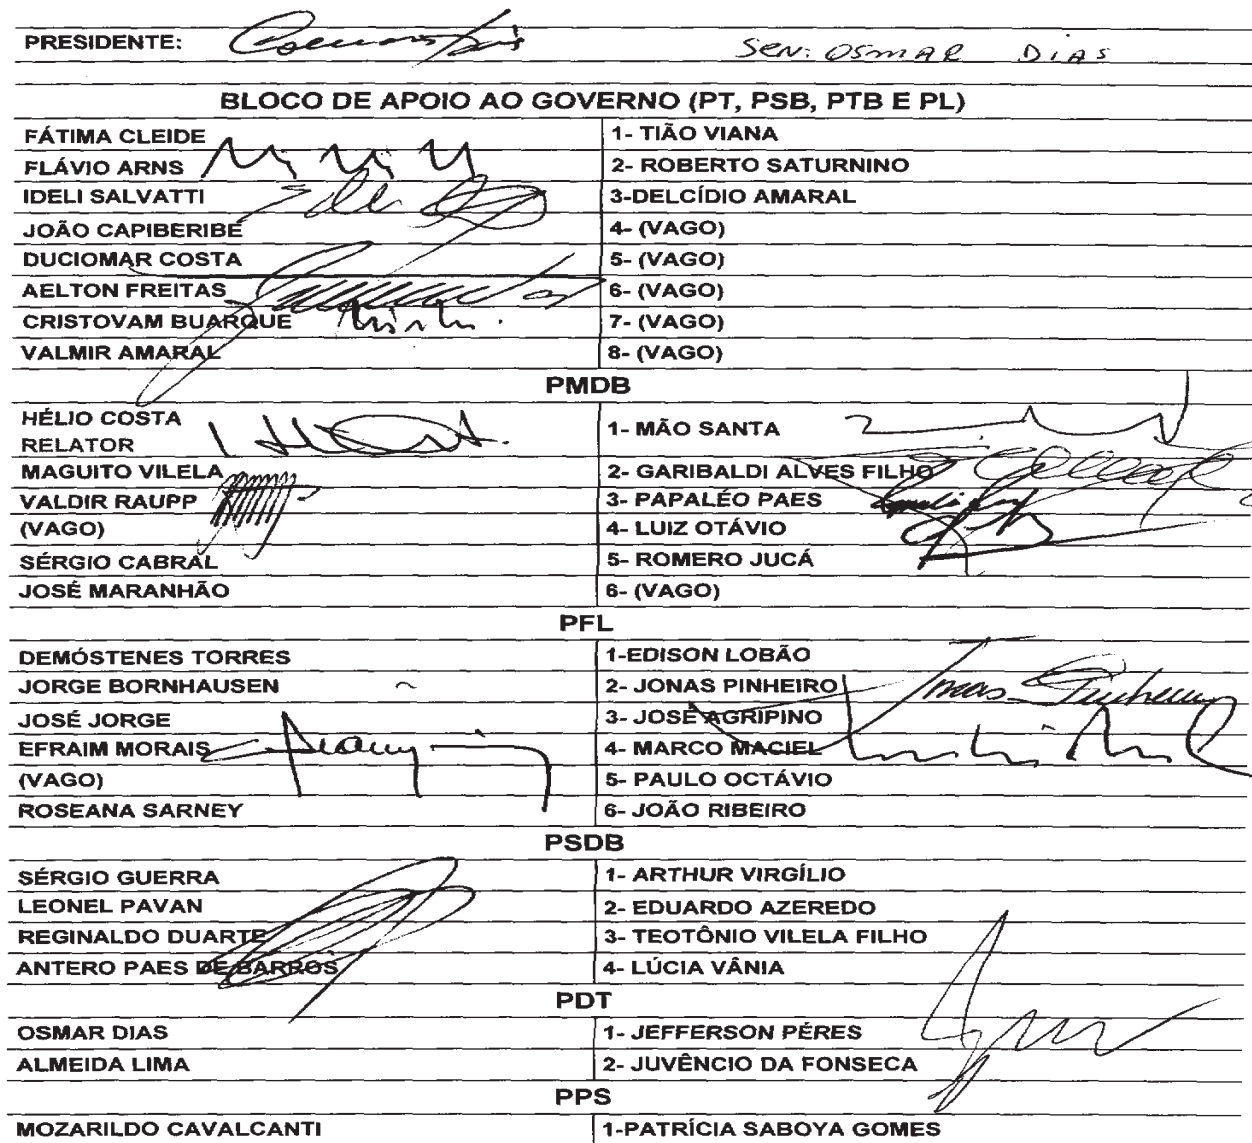 PRESIDENTE: Sen: Osmar Dias
BLOCO DE APOIO AO GOVERNO (PT, PSB, PTB E PL)
FÁTIMA CLEIDE 1- TIÃO VIANA
FLÁVIO ARNS 2- ROBERTO SATURNINO
IDELI SALVATTI 3-DELCÍDIO AMARAL
JOÃO CAPIBERIBE 4- (VAGO)
DUCIOMAR COSTA 5- (VAGO)
AELTON FREITAS 6- (VAGO)
CRISTOVAM BUARQUE 7- (VAGO)
VALMIR AMARAL 8- (VAGO)
PMDB
HÉLIO COSTA
RELATOR 1- MÃO SANTA
MAGUITO VILELA 2- GARIBALDI ALVES FILHO
VALDIR RAUPP 3- PAPALÉO PAES
(VAGO) 4- LUIZ OTÁVIO
SÉRGIO CABRAL 5- ROMERO JUCÁ
JOSÉ MARANHÃO 6- (VAGO)
PFL
DEMÓSTENES TORRES 1-EDISON LOBÃO
JORGE BORNHAUSEN 2- JONAS PINHEIRO Jonas Pinheiro
JOSÉ JORGE 3- JOSÉ AGRIPINO
EFRAIM MORAIS 4- MARCO MACIEL
(VAGO) 5- PAULO OCTÁVIO
ROSEANA SARNEY 6- JOÃO RIBEIRO
PSDB
SÉRGIO GUERRA 1- ARTHUR VIRGÍLIO
LEONEL PAVAN 2- EDUARDO AZEREDO
REGINALDO DUARTE 3- TEOTÔNIO VILELA FILHO
ANTERO PAES DE BARROS 4- LÚCIA VÂNIA
PDT
OSMAR DIAS 1- JEFFERSON PÉRES
ALMEIDA LIMA 2- JUVÊNCIO DA FONSECA
PPS
MOZARILDO CAVALCANTI 1-PATRÍCIA SABOYA GOMES